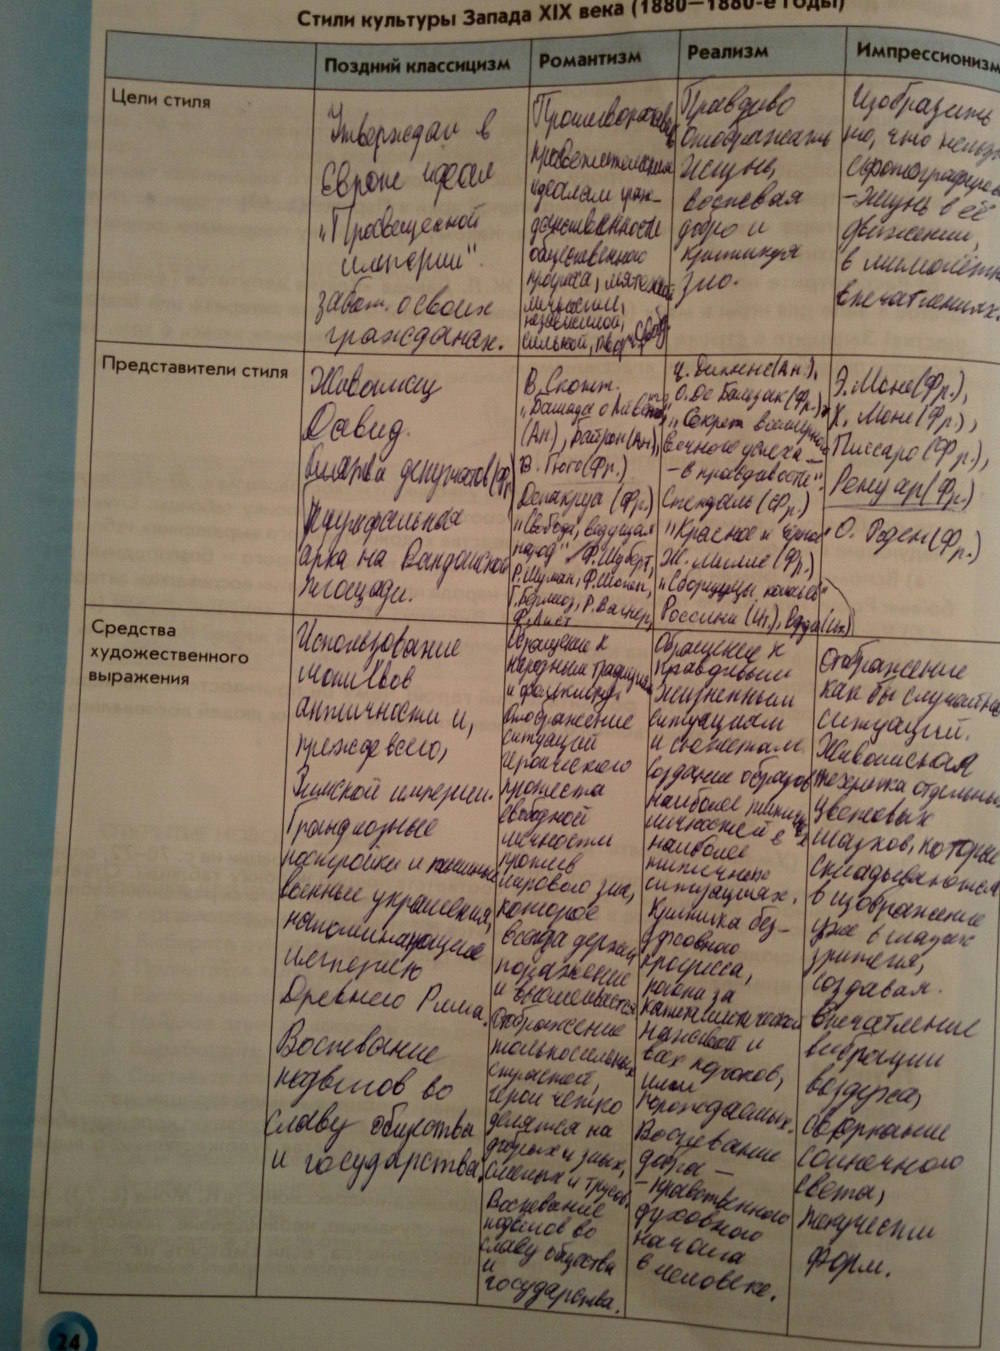 Стили культуры Запада XIX века (1880—1880-е годы)
Поздний классицизм
Романтизм
Реализм
Импрессионизм
Цели стиля
Утверждал в
Европе идеал
"Просвещенной
империи".
забот. о своих
гражданах.
Противопоставив
просветительским
идеалам граж-
дественности
общественного
прогресса, мятежной
личностии,
независимой,
сильной,
Правдиво
отображать
жизнь,
воспевая
добро и
критикуя
зло.
Изобразить
то, что нельзя
сфотографиров
-жизнь в её
движении,
в мимолётн
впечатлениях.
Представители стиля
Живописец
Давид.
Клятва депутатов (фр
Триумфальная
арка на Вандомской
площади.
В. Скотт.
"Баллада о Айвенго"
(Ан), Байрон (Ан),
В. Гюго (Фр.)
Делакруа (Фр)
"Свобода, ведущая
народ", Ф. Шуберт,
Р. Шуман, Ф. Шопен,
Г. Берлиоз, Р. Вагнер,
Ф. Лист
Ч. Диккенс (Ан.),
О. Де Бальзак (Фр.),
"Секрет всемирно
вечного успеха —
- в правдивости".
Стендаль (Фр.)
"Красное и чёрное
Ж. Милле (Фр.)
"Сборщицы колосьев"
Россини (Ит.), Верди (Ит)
Э. Моне (Фр.),
К. Моне (Фр.),
Писсаро (Фр.),
Ренуар (Фр.)
О. Роден (Фр.)
Средства
художественного
выражения
Использование
мотивов
античности и,
прежде всего,
Римской империи.
Грандиозные
постройки и
военные украшения,
напоминающие
империю
Древнего Рима.
Воспевание
подвигов во
славу общества
и государства.
Обращение к
народным традициям
и фольклору.
Отображение
ситуаций
героического
протеста
свободной
личности
против
мирового зла,
которое
всегда держит
поражение
и
Отображение
только сильных
страстей,
герои четко
делятся на
добрых и злых,
смелых и трусов.
Воспевание
подвигов во
славу общества
и
государства.
Обращение к
правдивым
жизненным
ситуациям
и сюжетам.
Создание образов
наиболее типич
личностей в
наиболее
типичных
ситуациях.
Критика без-
духовного
прогресса,
погони за
капиталистической
наживой и
всех пороков,
ими
порождаемых.
Воспевание
добра —
- нравственного
духовного
начала
в человеке.
Отображение
как бы случайных
ситуаций.
Живописная
техника отдельных
цветовых
мазков, которые
складываются
в изображение
уже в глазах
зрителя,
создавая.
впечатление
вибрации
воздуха,
сверкание
солнечного
света,
текучести
форм.
24